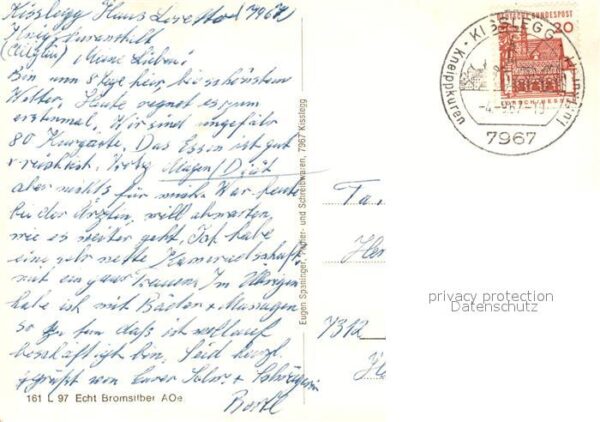 Kisslegg Haus Loretto, 7967
(Allgäu) Meine Lieben!
Bin nun 8 Tage hier, bei schönstem
Wetter. Heute regnet es zum
erstenmal. Wir sind ungefähr
80 Kurgäste. Das Essen ist gut
+ reichlich. Magen/Diät
aber nichts für mich. War heute
bei der Ärztin, will abwarten,
wie es weiter geht. Ich habe
eine sehr nette Kameradschaft
mit ein paar Frauen. Im Übrigen
habe ich mit Baden + Massagen
so zu tun daß ich vollauf
beschäftigt bin. Seid herzl.
gegrüßt von Eurer +
161 L 97 Echt Bromsilber AOe.
Eugen Spaninger, Papier- und Schreibwaren, 7967 Kisslegg
DEUTSCHE BUNDESPOST
20
KISSLEGG
Kneippkuren
Luftkurort
7967
Fa.
7312
privacy protection
Datenschutz